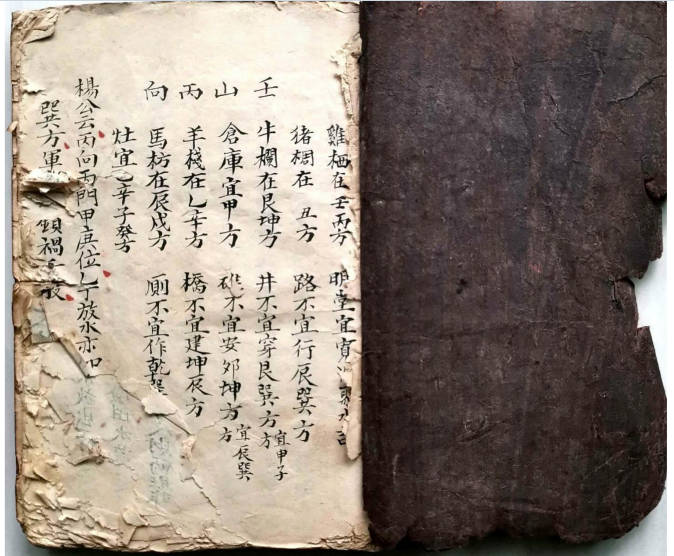 雞栖在壬丙方 明堂宜寬
猪椆在 丑方 路不宜行辰巽方
壬 牛欄在艮坤方 井不宜穿艮巽方方 宜甲子
山 倉庫宜甲方 碓不宜安卯坤方方 宜辰巽
丙 羊棧在乙辛方 橋不宜建坤艮方
向 馬枋在辰戌方 厠不宜作乾巽
灶宜乙辛子癸方
楊公云丙向丙門甲庚位 放水亦如
巽方軍 頃禍